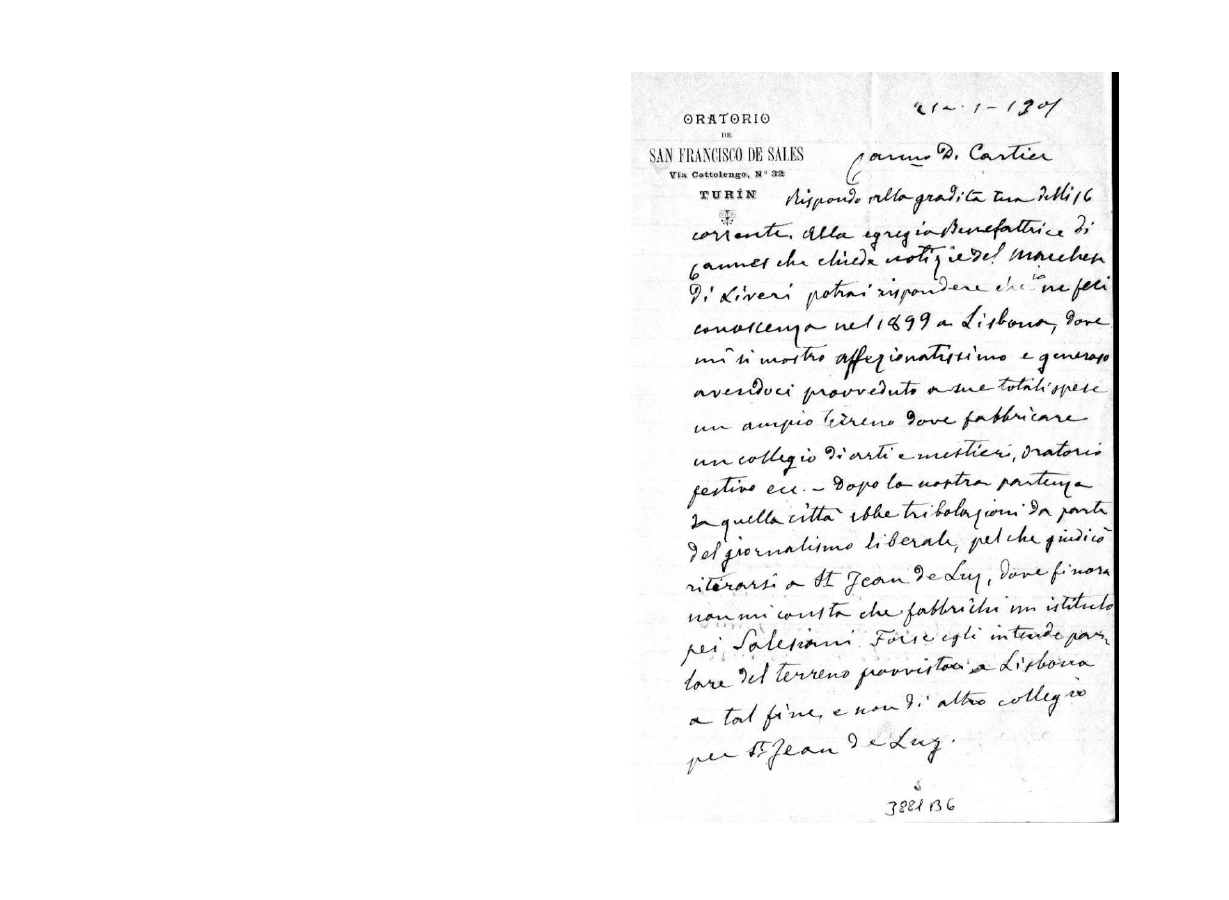 ORATORIO
DE
SAN FRANCISCO DE SALES
Via Cottolengo, N° 32
TURÍN
21-1-1901
Carmo D. Cartier
Rispondo alla gradita tua delli 16
corrente. Alla egregia Benefattrice di
Cannes che chiede notizie del Marchese
Di Liveri potrai rispondere che io ne feci
conoscenza nel 1899 a Lisbona, dove
mi si mostro affezionatissimo e generoso
avendoci provveduto a sue totali spese
un ampio terreno dove fabbricare
un collegio di arti e mestieri, oratorio
festivo ecc. - Dopo la nostra partenza
da quella città ebbe tribolazioni da parte
del giornalismo liberale, pel che giudicò
ritirarsi a St Jean de Luz, dove finora
non mi consta che fabbrichi un istituto
pei Salesiani. Forse egli intende par-
lare del terreno provvistoci a Lisbona
a tal fine, e non di altro collegio
per St Jean de Luz.
3881 B6